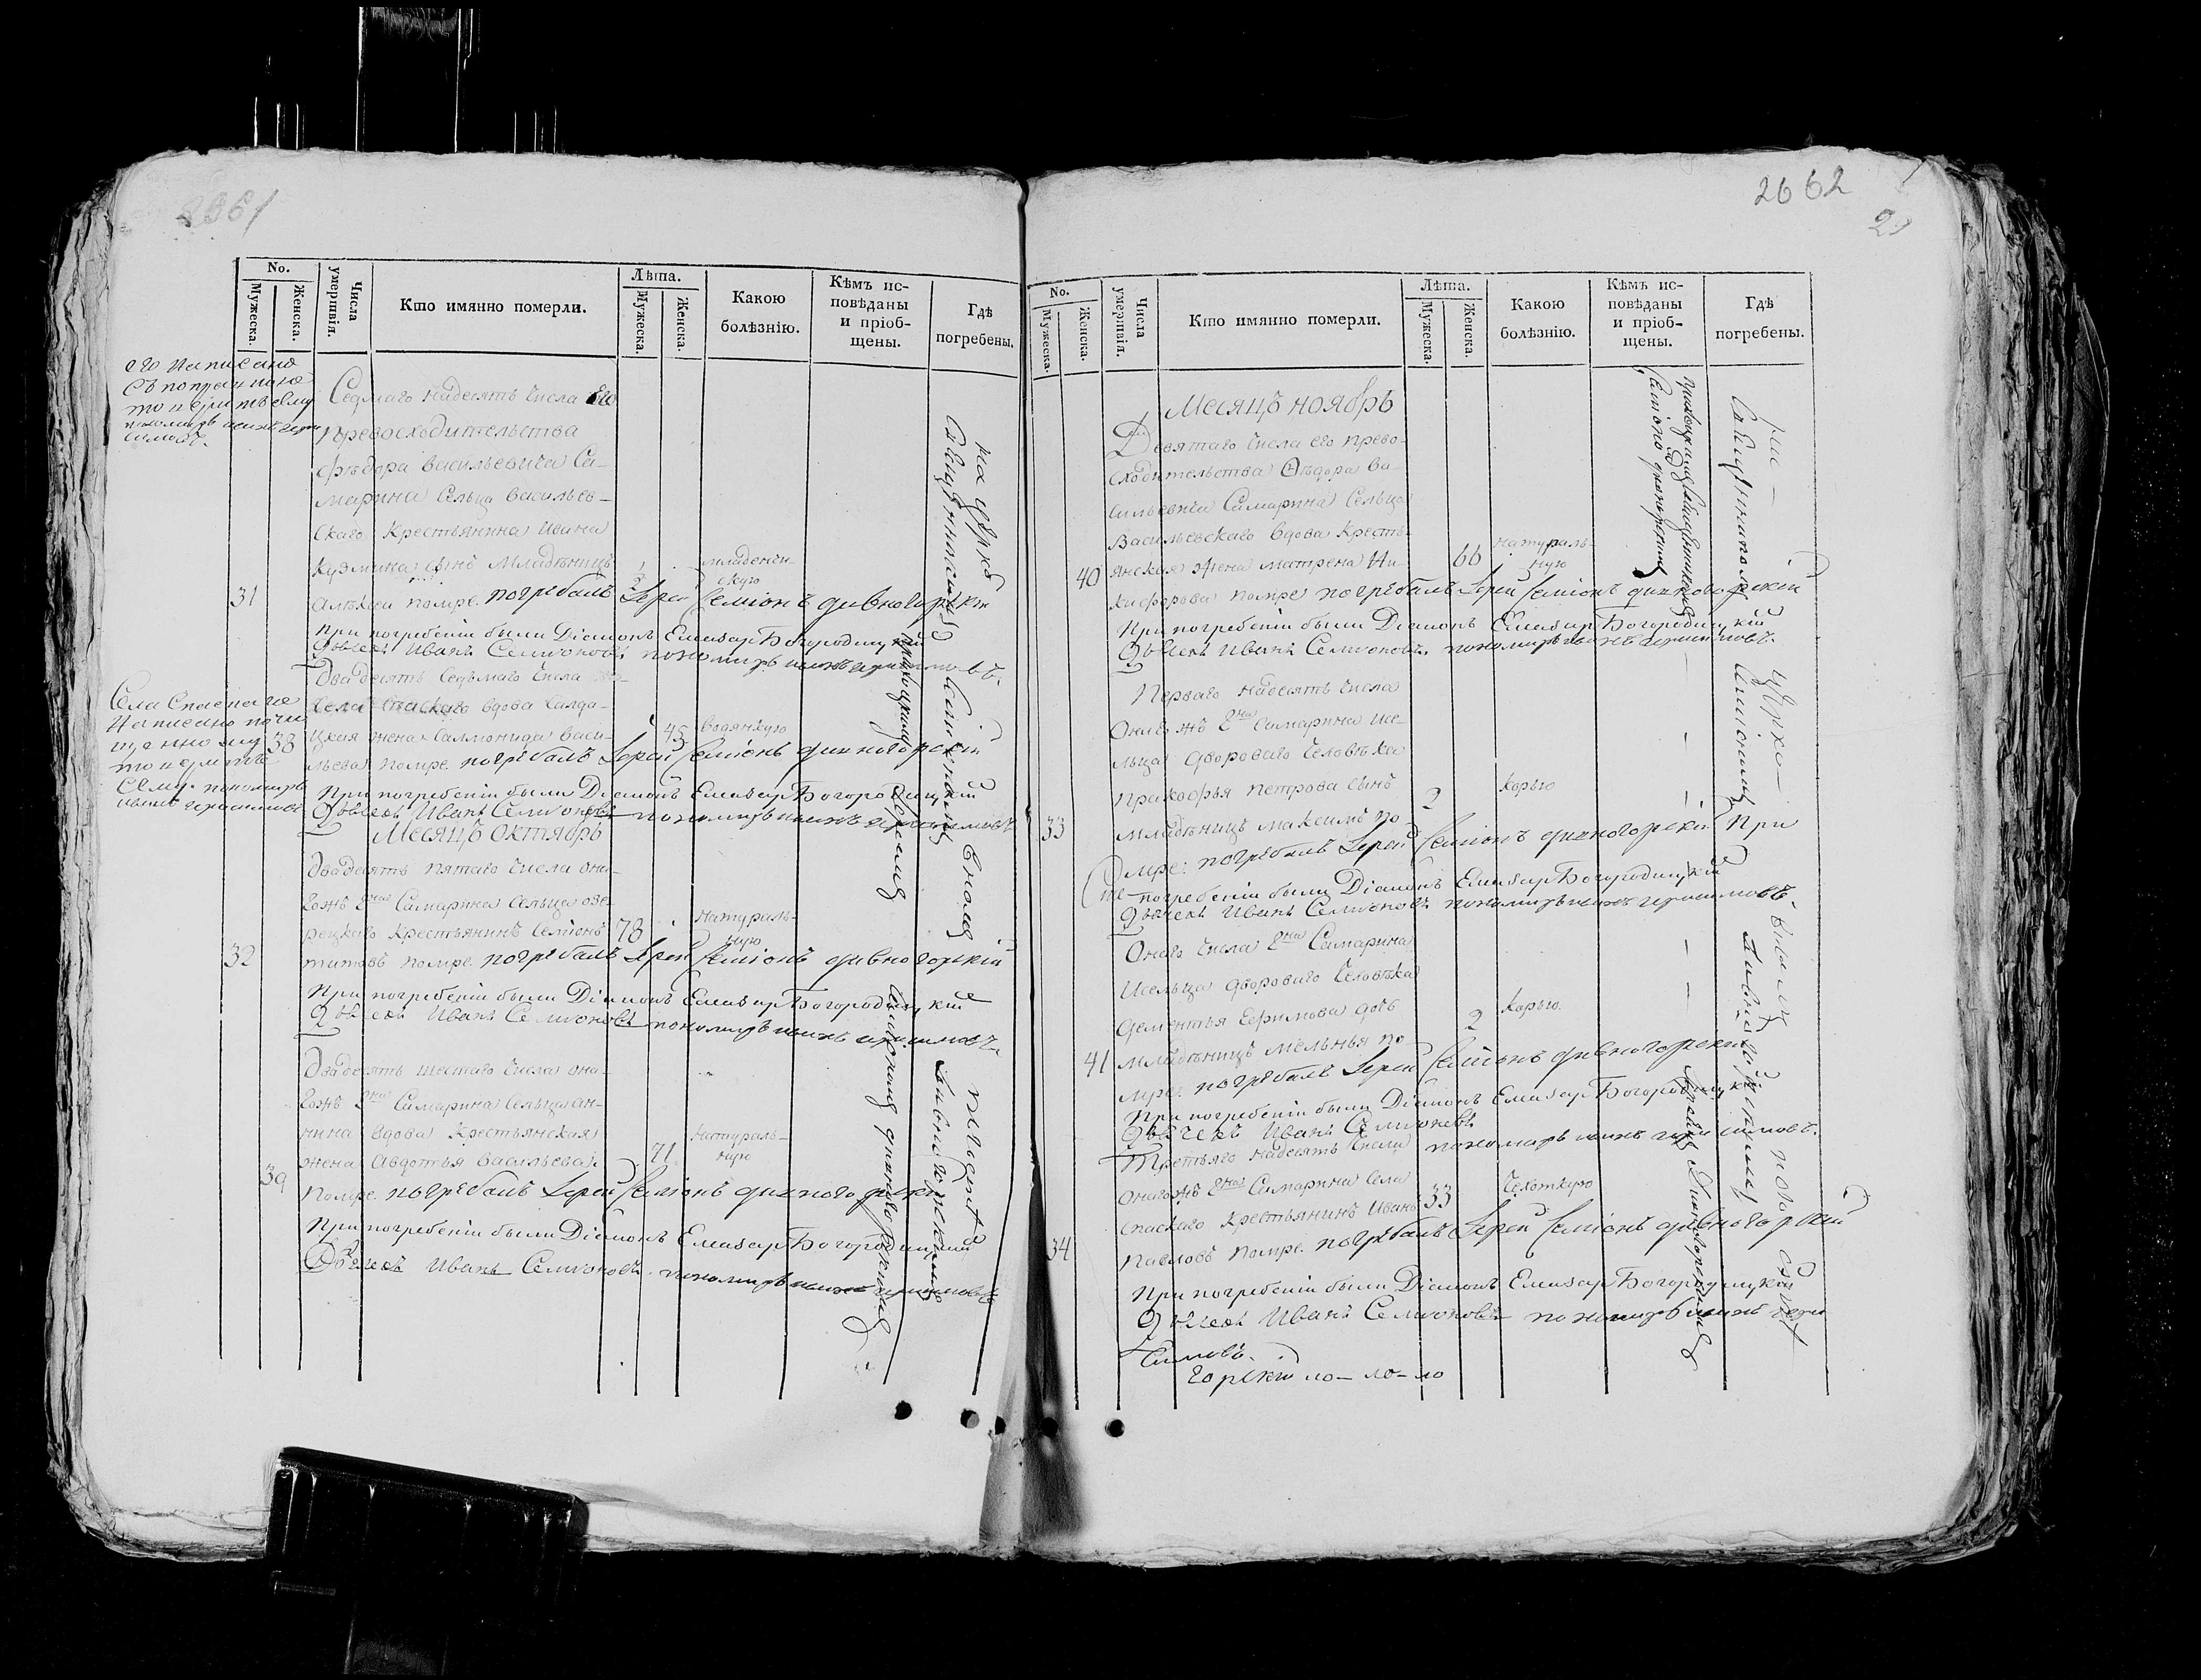 2661
No.
Мужеска.
Женска.
Числа умершвія.
Кто имянно померли.
Лѣта.
Мужеска.
Женска.
Какою болѣзнію.
Кѣмъ исповѣданы и пріобщены.
Гдѣ погребены.
его написано
Седмаго надесять числа Его
превосходительства
Федора Васильевича Са-
марина Сельца Васильев-
скаго Крестьянина Ивана
Кузмина сынъ Младѣницъ
младенче-
скую
31
Алѣксеи помре. погребалъ Іерей Семіонъ дивногорскій
При погребеніи были Діаконъ Елиазаръ Богородицкій
Дьячекъ Иванъ Семионовъ пономарь
Двадесять Седьмаго числа
Села Спаскаго
Села Спаскаго вдова Салда-
написано
38
цкая жена Саломонида Васи-
45
водянную
льева помре. погребалъ Іерей Семіонъ дивногорскій
При погребеніи были Діаконъ Елиазаръ Богородицкій
Дьячекъ Иванъ Семионовъ пономарь
Месяцъ Октябрь
Двадесять пятаго числа она-
гожъ Гна Самарина Сельца Озе-
рецкаго Крестьянинъ Семіонъ
78
натураль-
ную
32
титовъ помре. погребалъ Іерей Семіонъ дивногорскій
При погребеніи были Діаконъ Елиазаръ Богородицкій
Дьячекъ Иванъ Семионовъ пономарь
Двадесять шестаго числа она-
гожъ Гна Самарина Сельца Ан-
нина вдова Крестьянская
жена Авдотья Васильева
71
натураль-
ную
39
помре. погребалъ Іерей Семіонъ дивногорскій
При погребеніи были Діаконъ Елиазаръ Богородицкій
Дьячекъ Иванъ Семионовъ пономарь
на церко
Священникомъ
2662
No.
Мужеска.
Женска.
Числа умершвія.
Кто имянно померли.
Лѣта.
Мужеска.
Женска.
Какою болѣзнію.
Кѣмъ исповѣданы и пріобщены.
Гдѣ погребены.
Месяцъ ноябрь
Девятаго числа его прево-
сходительства Ѳѣдора Ва-
сильевича Самарина Сельца
Васильевскаго вдова Кресть-
янская жена Матрена Ни-
40
66
натураль-
ную
кифорова помре погребалъ Іерей Семіонъ дивногорскій
При погребеніи были Діаконъ Елиазаръ Богородицкій
Дьячекъ Иванъ Семионовъ пономарь
Перваго надесять числа
Онагожъ Гна Самарина Исе-
льца дворового человѣка
Пракофья Петрова сынъ
2
корью
33
младѣницъ Максимъ по
мре: погребалъ Іерей Семіонъ дивногорскій При
погребеніи были Діаконъ Елиазаръ Богородицкій
Дьячекъ Иванъ Семионовъ пономарь
Онаго числа Гна Самарина
Исельца дворового человѣка
Дементья Ефимова дочь
2
корью
41
младѣницъ Меланья по
мре. погребалъ Іерей Семіонъ дивногорскій
При погребеніи были Діаконъ Елиазаръ Богородицкій
Дьячекъ Иванъ Семионовъ
Третьяго надесять числа
Онагожъ Гна Самарина Села
Спаскаго Крестьянинъ Иванъ
33
чехоткою
34
Павловъ помре. погребалъ Іерей Семіонъ дивногорскій
При погребеніи были Діаконъ Елиазаръ Богородицкій
Дьячекъ Иванъ Семионовъ пономарь